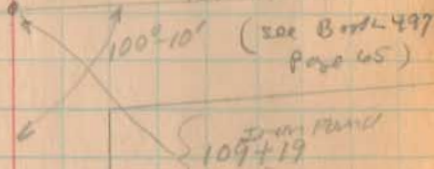 100°-10'
(see Book 497
Page 65)
Iron Found
109+19